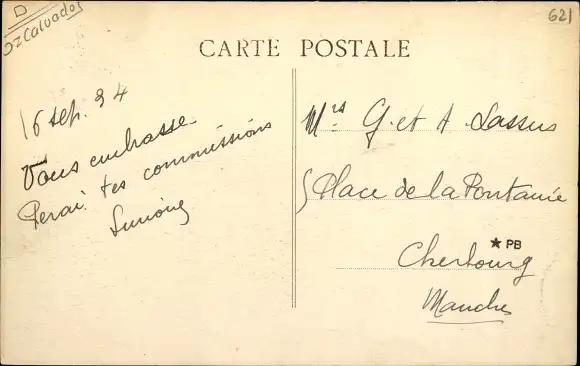 D
Calvados
621
CARTE POSTALE
16 sep. 34
Vous embrasse
Ferai tes commissions
Mrs G. et A. Lassus
5 Place de la Fontaine
Cherbourg
★ PB
Manche